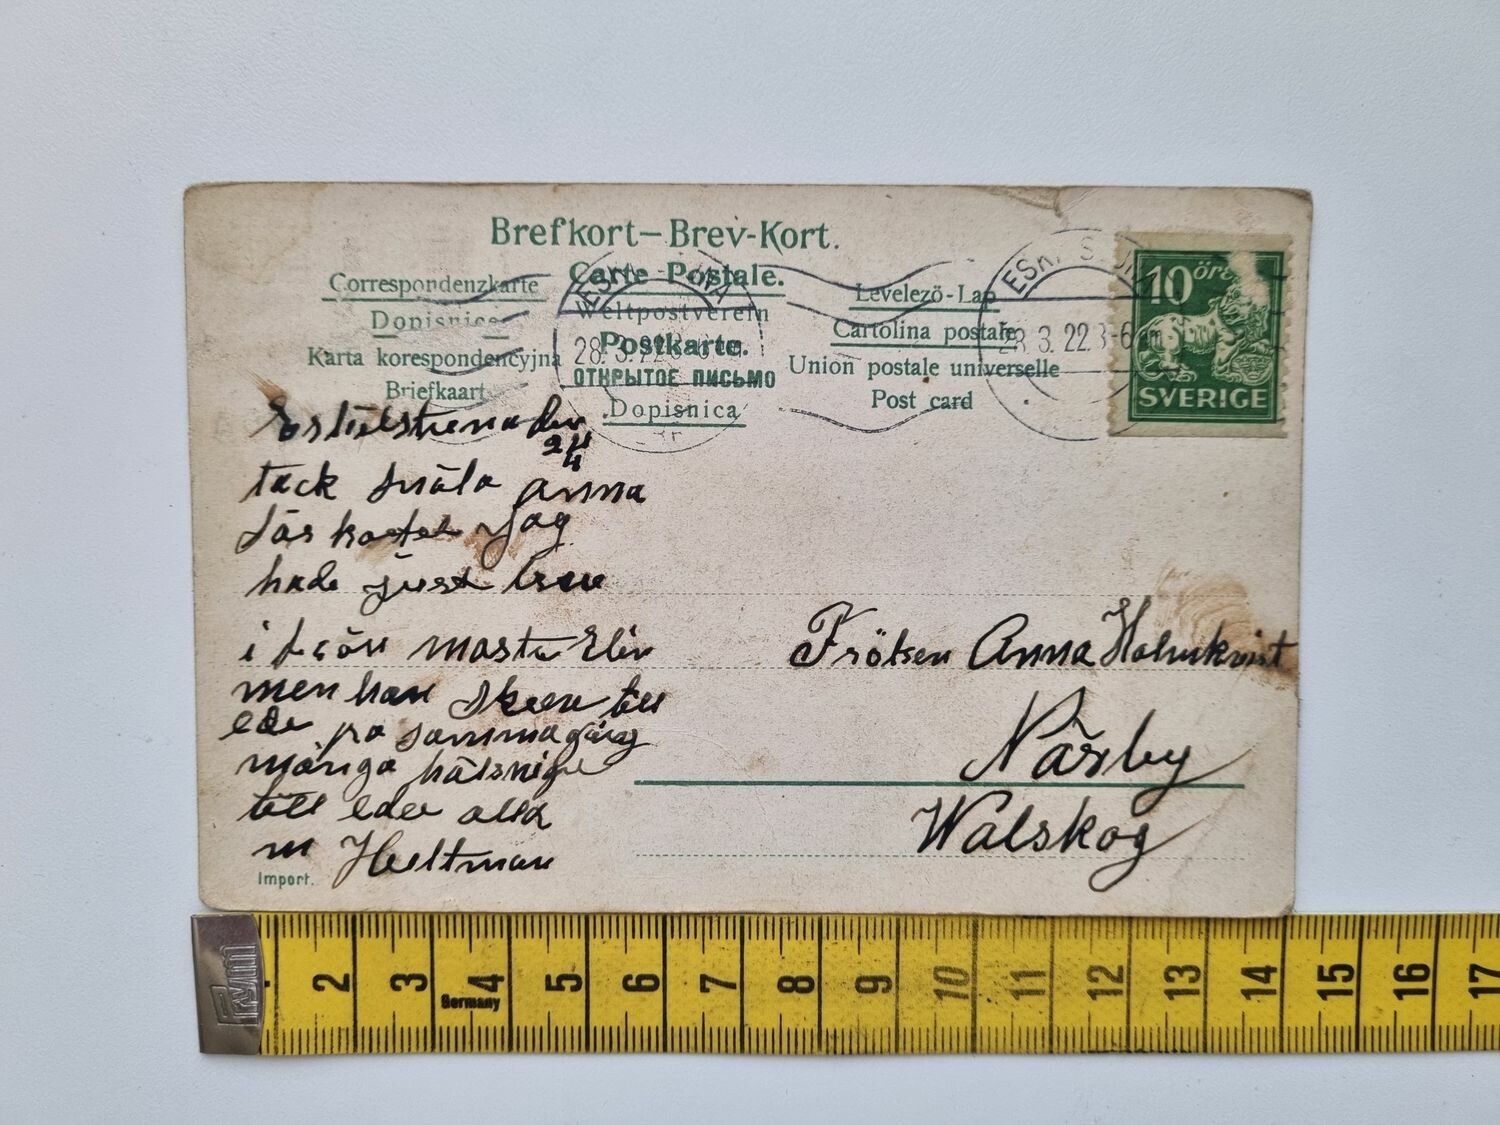 Brefkort–Brev-Kort.
Carte Postale.
Weltpostverein
Postkarte.
ОТКРЫТОЕ ПИСЬМО
Dopisnica
Correspondenzkarte
Dopisnice
Karta korespondencyjna
Briefkaart
Levelezö-Lap
Cartolina postale
Union postale universelle
Post card
28.3.22
28.3.22.3-6
10 öre
SVERIGE
den
tack snäla anna
kortet Jag
hade just
i
men han till
eder på samma gång
många hälsnigar
till eder alla
m Hultman
Import.
Fröken Anna Holmkvist
Närby
Walskog
Prym
Germany
2 3 4 5 6 7 8 9 10 11 12 13 14 15 16 17